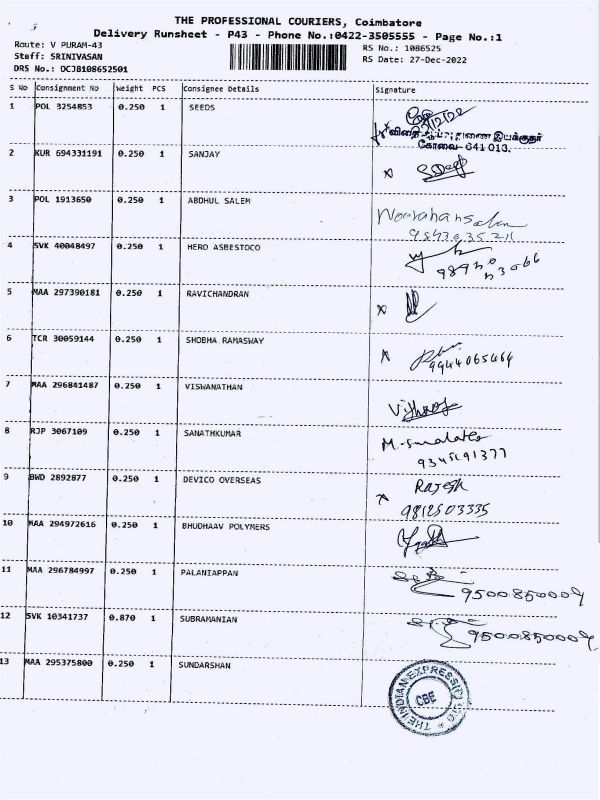 THE PROFESSIONAL COURIERS, Coimbatore
Delivery Runsheet - P43 - Phone No.:0422-3505555 - Page No.:1
Route: V PURAM-43
Staff: SRINIVASAN
DRS No.: OCJB108652501
RS No.: 1086525
RS Date: 27-Dec-2022
S No Consignment No Weight PCS Consignee Details Signature
1 POL 3254853 0.250 1 SEEDS
கோவை- 641 013.
2 KUR 694331191 0.250 1 SANJAY
3 POL 1913650 0.250 1 ABDHUL SALEM
4 SVK 40048497 0.250 1 HERO ASBESTOCO
5 MAA 297390181 0.250 1 RAVICHANDRAN
6 TCR 30059144 0.250 1 SHOBHA RAMASWAY
9944065464
7 MAA 296841487 0.250 1 VISWANATHAN
8 RJP 3067109 0.250 1 SANATHKUMAR
9345191377
9 BWD 2892877 0.250 1 DEVICO OVERSEAS Rajesh
9812503335
10 MAA 294972616 0.250 1 BHUDHAAV POLYMERS
11 MAA 296784997 0.250 1 PALANIAPPAN
9500850009
12 SVK 10341737 0.870 1 SUBRAMANIAN
9500850009
13 MAA 295375800 0.250 1 SUNDARSHAN
THE INDIAN EXPRESS (P) LTD
CBE